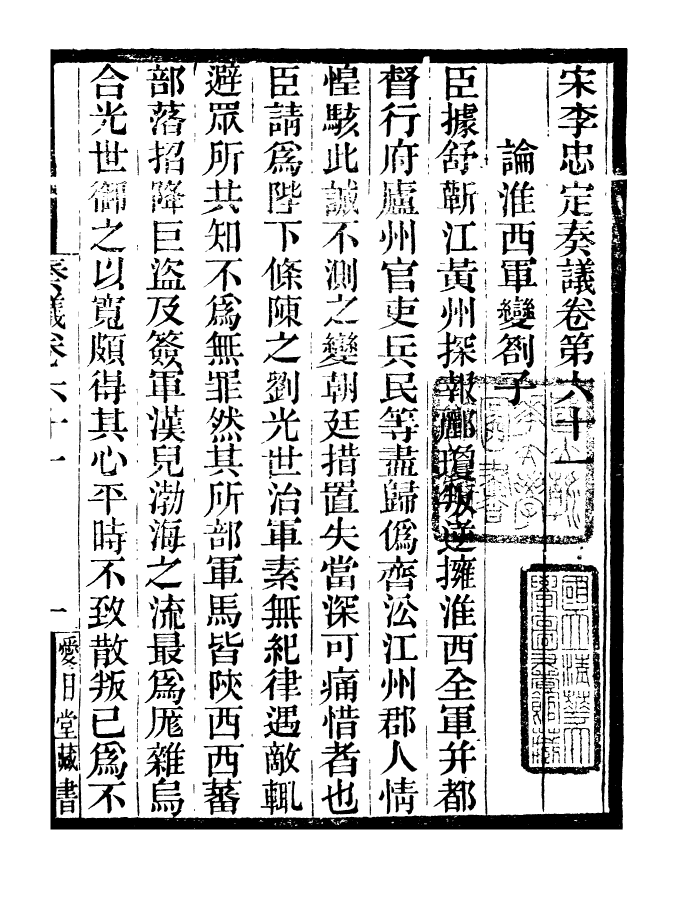 宋李忠定奏議卷第六十一
論淮西軍變劄子
臣據舒蘄江黃州探報酈瓊叛逆擁淮西全軍幷都
督行府廬州官吏兵民等盡歸僞齊㳂江州郡人情
惶駭此誠不測之變朝廷措置失當深可痛惜者也
臣請爲陛下條陳之劉光世治軍素無紀律遇敵輒
避眾所共知不爲無罪然其所部軍馬皆陝西西蕃
部落招降巨盜及簽軍漢兒渤海之流最爲厖雜烏
合光世御之以寬頗得其心平時不致散叛已爲不
奏議卷六十一
一
愛日堂藏書